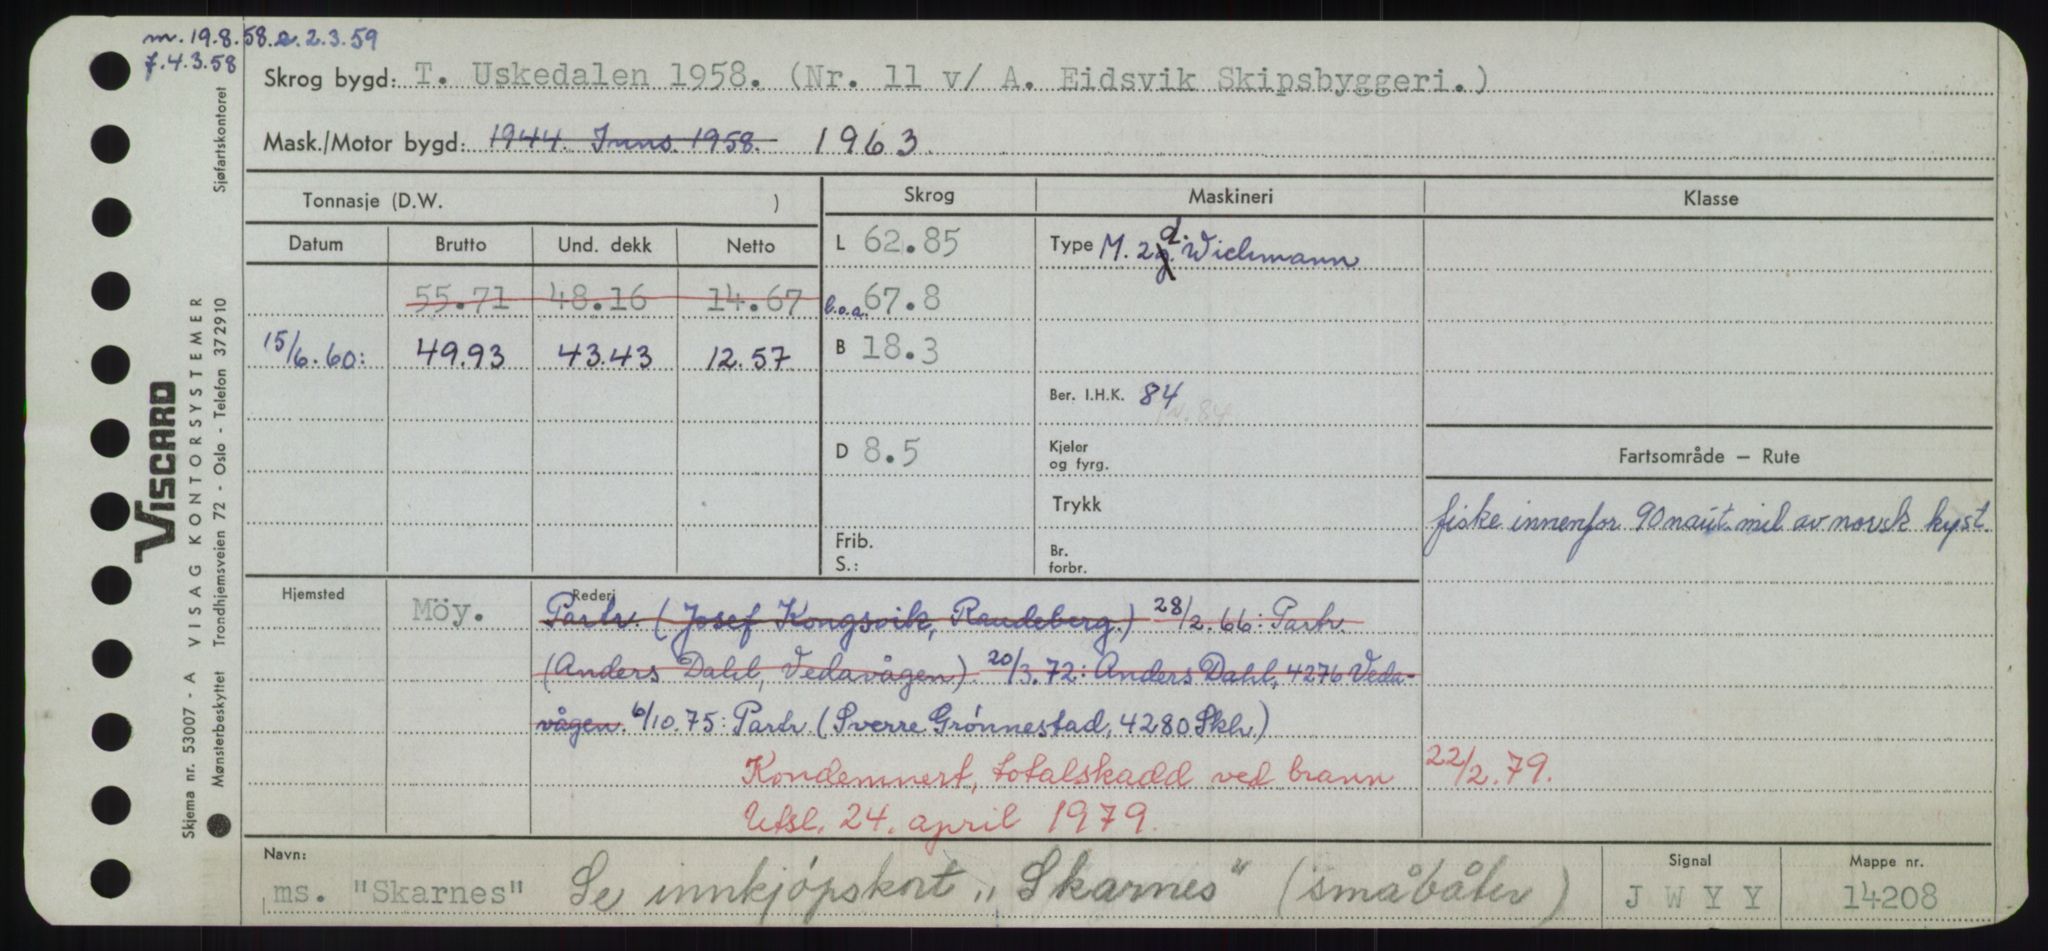 m. 19.8.58. e. 2.3.59
f. 4.3.58
Skrog bygd: T. Uskedalen 1958. (Nr. 11 v/ A. Eidsvik Skipsbyggeri.)
Mask./Motor bygd: 1944. Inns. 1958. 1963
Tonnasje (D.W. )
Skrog
Maskineri
Klasse
Datum
Brutto
Und. dekk
Netto
L 62.85
Type M. 2 d. Wichmann
55.71 48.16 14.67
b.o.a. 67.8
15/6.60: 49.93 43.43 12.57
B 18.3
Ber. I.H.K. 84
D 8.5
Kjeler
og fyrg.
Fartsområde — Rute
Trykk
fiske innenfor 90 naut. mil av norsk kyst.
Frib.
S.:
Br.
forbr.
Hjemsted
Rederi
Möy.
Partr. (Josef Kongsvik, Raudeberg.) 28/2.66: Partr.
(Anders Dahl, Vedavågen). 20/3.72: Anders Dahl, 4276 Veda-
vågen. 6/10.75: Partr. (Sverre Grønnestad, 4280 Skh.)
Kondemnert, totalskadd ved brann 22/2.79.
Utsl. 24. april 1979.
Navn:
Signal
Mappe nr.
ms. "Skarnes" Se innkjøpskort „Skarnes" (småbåter)
J W Y Y
14208
VISCARD
VISAG KONTORSYSTEMER
Skjema nr. 53007 - A
Mønsterbeskyttet Trondhjemsveien 72 - Oslo - Telefon 372910 Sjøfartskontoret